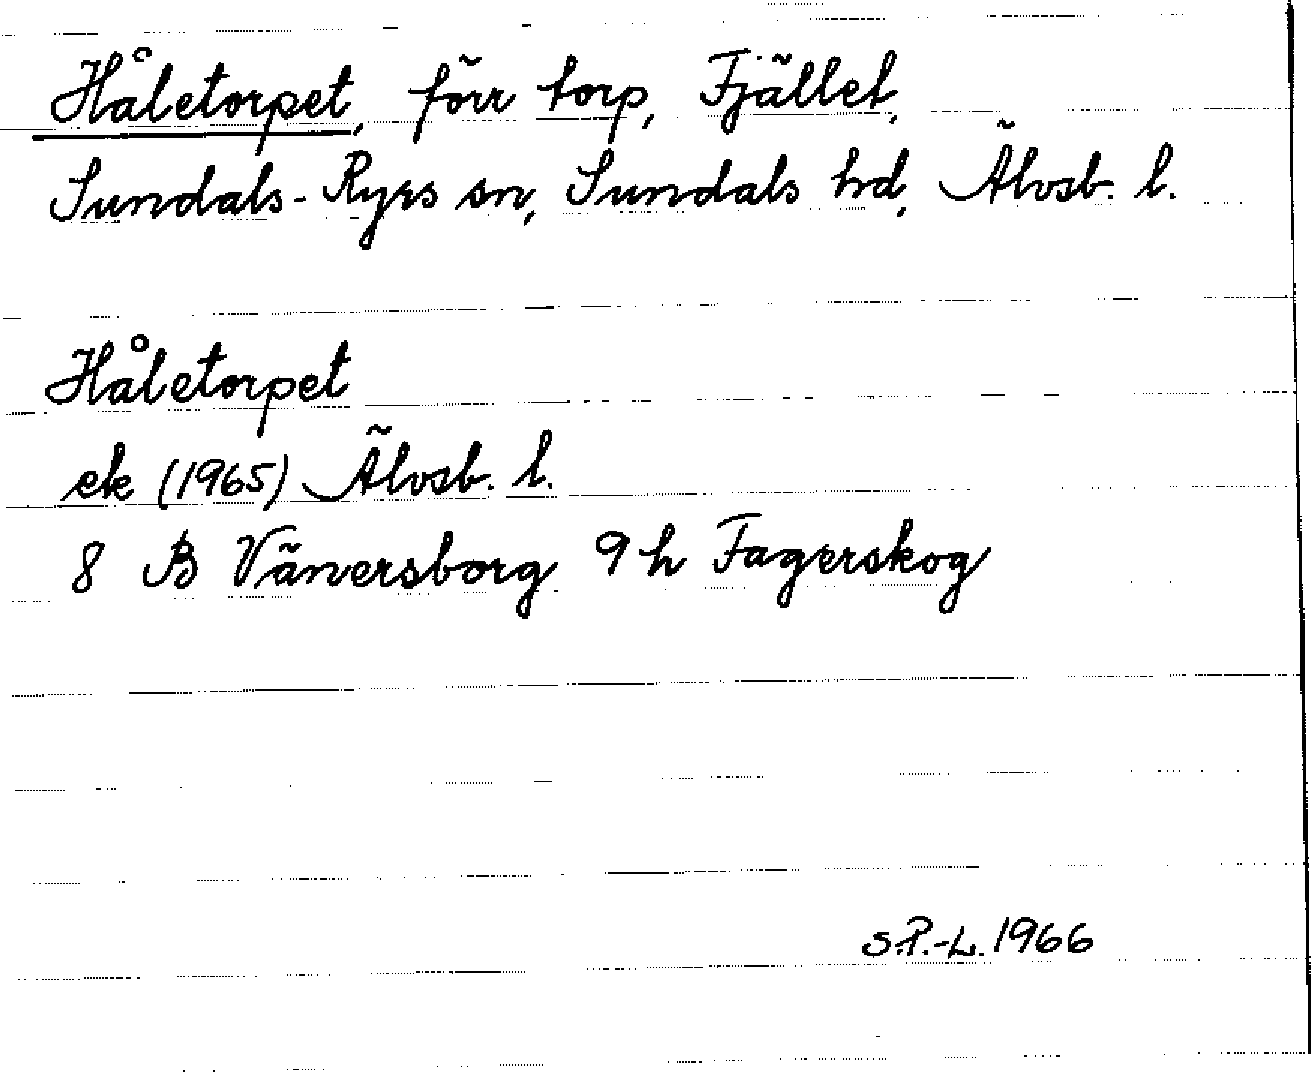 Håletorpet, förr torp, Fjället,
Sundals-Ryrs sn, Sundals hd, Älvsb. l.
Håletorpet
ek (1965) Älvsb. l.
8 B Vänersborg 9 h Fagerskog
S.P.-L. 1966